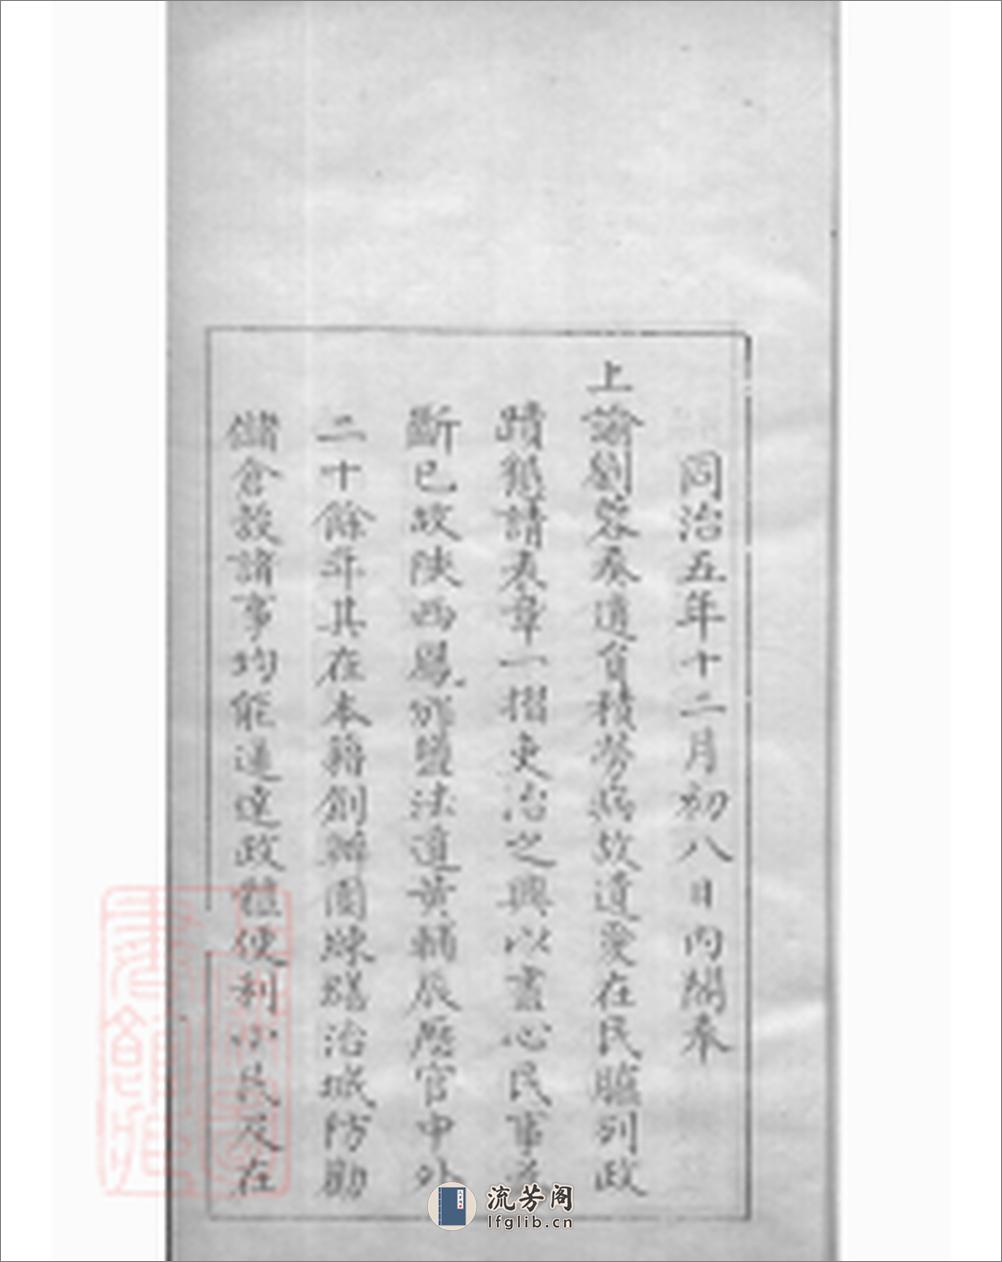 同治五年十二月初八日內閣奉
上諭劉蓉奏道員積勞病故遺愛在民臚列政
蹟懇請表章一摺吏治之興以盡心民事為
斷已故陝西鳳邠鹽法道黃輔辰歷官中外
二十餘年其在本籍創辦團練繕治城防勸
儲倉穀諸事均能達政體便利小民及在
流芳阁
lfglib.cn